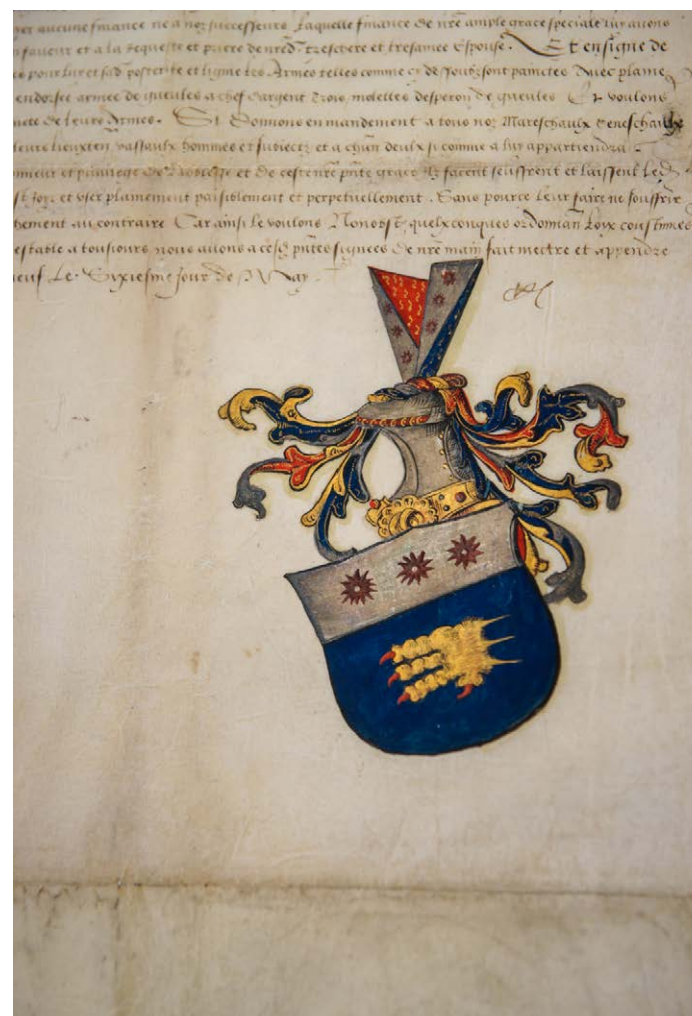 aucune finance ne a noz successeurs Laquelle finance de nr̃e ample grace speciale luy avons
faveur et a la requeste et priere de nr̃ed treschere et tresamee Espouse. Et en signe de
pour luy et sad posterite et ligne les Armes telles comme cy dessoubz sont painctes Avec plaine
endossee armee de gueules a chef dargent Trois molettes desperon de gueules Et voulons
de leurs Armes. Si Donnons en mandement a tous noz Mareschaulx Seneschaulx
leurs lieuxten vassaulx hommes et subiectz et a chũn deulx si comme a luy appartiendra
et privilege de Noblesse et de ceste nr̃e pñte grace Ilz facent seuffrent et laissent led
et user plainement paisiblement et perpetuellement. Sans pource leur faire ne souffrir
au contraire Car ainsi le voulons Nonobst quelxconques ordonnan Loix coustumes
estable a tousiours nous avons a cesd pñtes signees de nr̃e main fait mectre et appendre
Le Sixiesme Jour de May